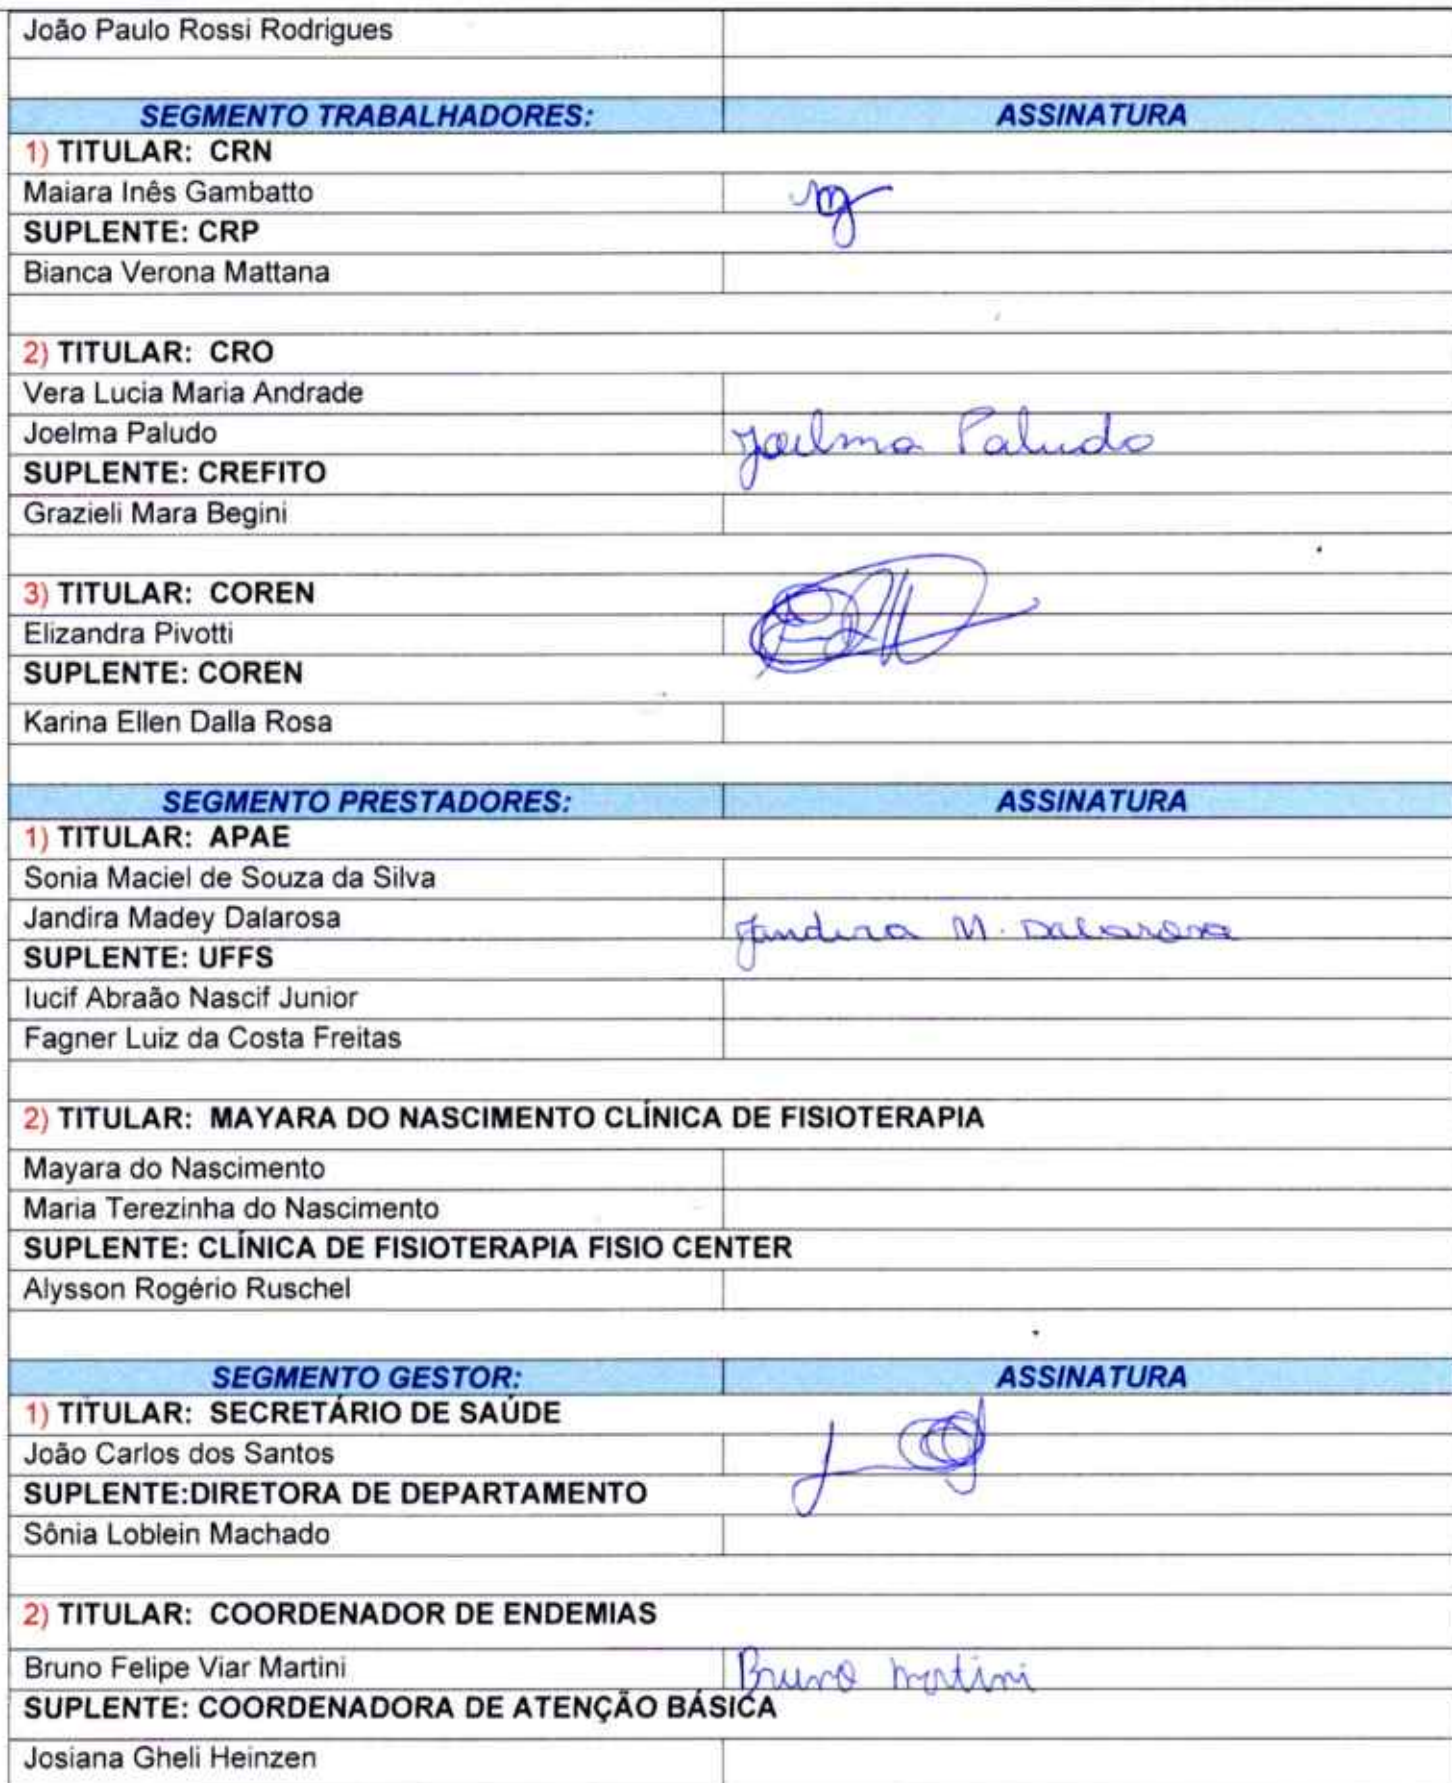 João Paulo Rossi Rodrigues
SEGMENTO TRABALHADORES: ASSINATURA
1) TITULAR: CRN
Maiara Inês Gambatto
SUPLENTE: CRP
Bianca Verona Mattana
2) TITULAR: CRO
Vera Lucia Maria Andrade
Joelma Paludo Joelma Paludo
SUPLENTE: CREFITO
Grazieli Mara Begini
3) TITULAR: COREN
Elizandra Pivotti
SUPLENTE: COREN
Karina Ellen Dalla Rosa
SEGMENTO PRESTADORES: ASSINATURA
1) TITULAR: APAE
Sonia Maciel de Souza da Silva
Jandira Madey Dalarosa Jandira M. Dalarosa
SUPLENTE: UFFS
Iucif Abraão Nascif Junior
Fagner Luiz da Costa Freitas
2) TITULAR: MAYARA DO NASCIMENTO CLÍNICA DE FISIOTERAPIA
Mayara do Nascimento
Maria Terezinha do Nascimento
SUPLENTE: CLÍNICA DE FISIOTERAPIA FISIO CENTER
Alysson Rogério Ruschel
SEGMENTO GESTOR: ASSINATURA
1) TITULAR: SECRETÁRIO DE SAÚDE
João Carlos dos Santos
SUPLENTE:DIRETORA DE DEPARTAMENTO
Sônia Loblein Machado
2) TITULAR: COORDENADOR DE ENDEMIAS
Bruno Felipe Viar Martini Bruno Martini
SUPLENTE: COORDENADORA DE ATENÇÃO BÁSICA
Josiana Gheli Heinzen